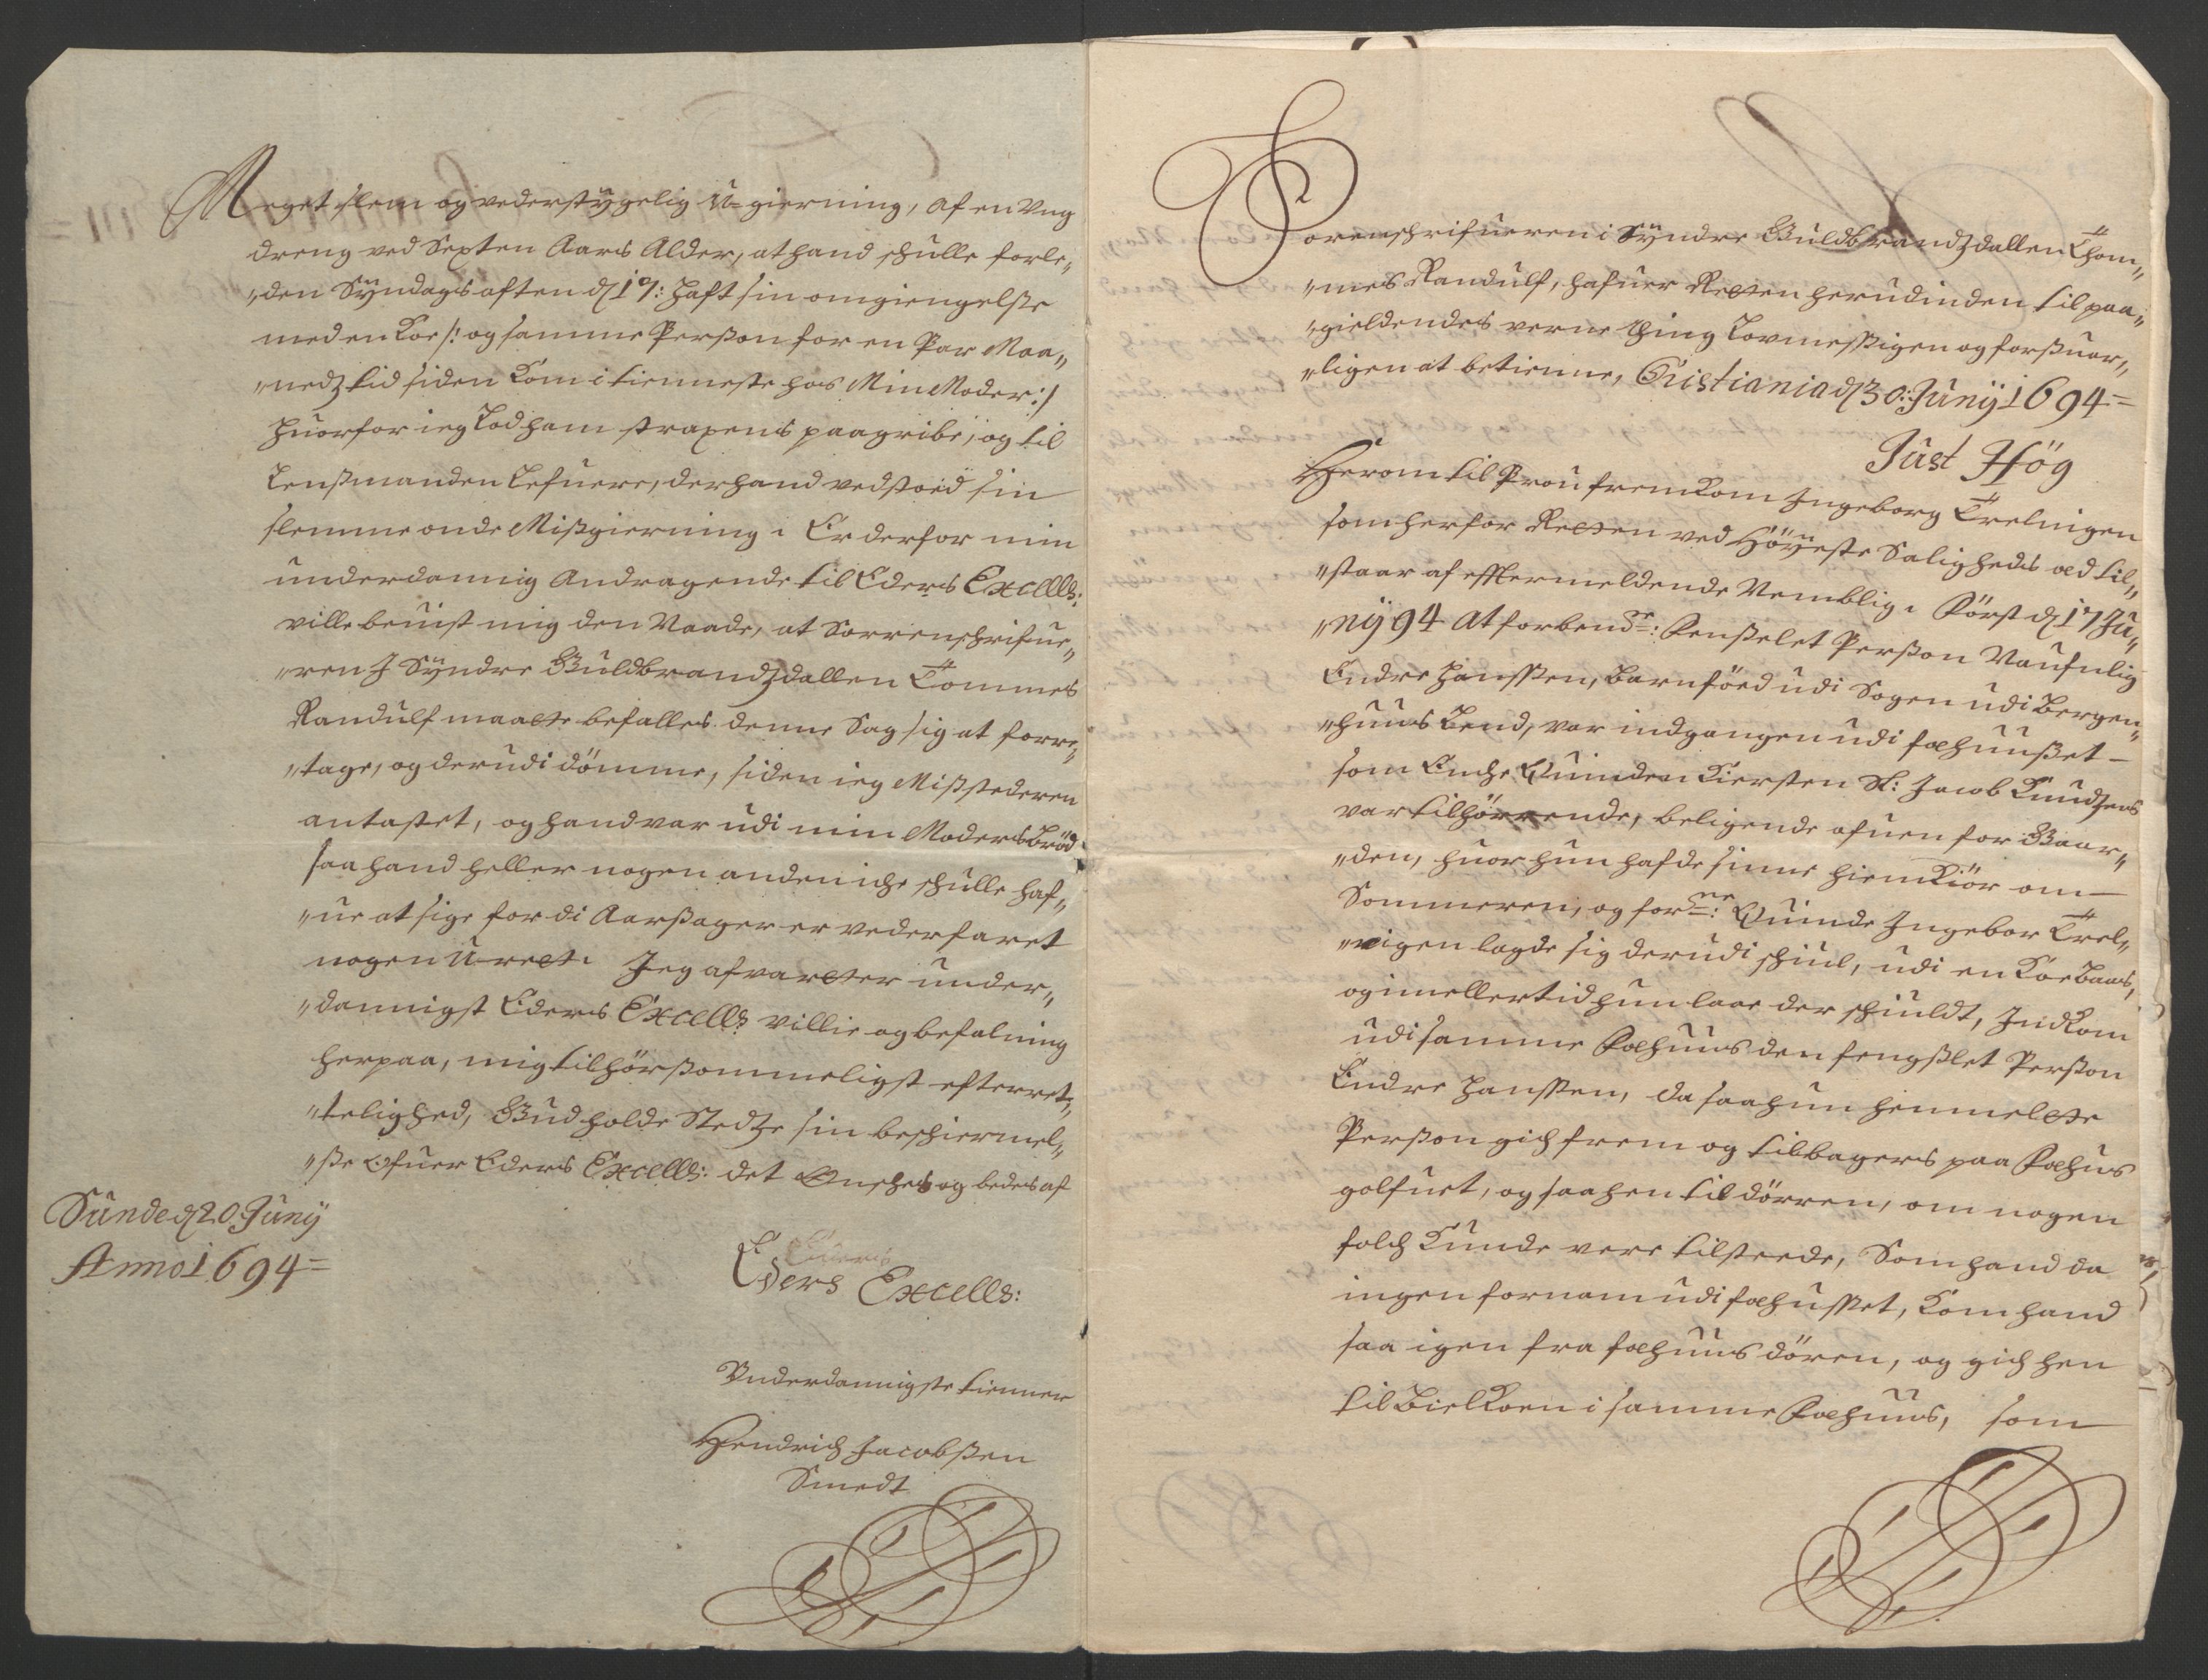 Meget slem og vederstÿgelig U-gierning, af en Ung
dreng ved Sexten Aars Alder, at hand schulle forle„
„den Sÿndags aften d 17: Haft sin omgiengelse
med en Koe /: og samme Person for en Par Maa„
„nedz tid siden Kom i tienneste hos Min Moder :/
Huorfor ieg Lod ham straxens paagribe, og til
Lensmanden Lefuere, der hand vedstoed sin
slemme onde Misgierning. Er derfor min
underdannig Andragende til Eders Excellls:
ville beuist mig den Naade, at Sorrenschrifue„
„ren J Sÿndre Guldbrandzdallen Tommes
Randulf maatte befalles denne Sag sig at forre„
„tage, og derudi dömme, siden ieg Misstederen
antastet, og hand var udi min Moders bröd
saa hand heller nogen anden iche schulle haf„
„ue at sige for di Aarsager er vederfaret
nogen U-rett. Jeg afvarter under„
„dannigst Eders Excells villie og befalning
herpaa, mig til hörsommeligst efterret„
„telighed, Gud holde Stedze sin beschiermel„
„se Ofuer Eders Excells: det Ønsches og bedes af
Sunde d 20 Junÿ
Anno 1694=
Eders Excells:
Underdannigste tienner
Hendrich Jacobsen
Smedt
Sorenschrifueren i Sÿndre Guldbrandzdallen Thom„
„mes Randulf, hafuer Retten herudinden til paa„
„gieldendes verne thing Lovmessigen og forsuar„
„ligen at betienne, Cristiania d 30: Junÿ 1694=
Just Hög
Herom til Prou fremkom Ingeborg Trelnigen
som her for Retten ved Höÿeste Saligheds æd til„
„staar af effter meldende Nemblig. Först d 17 Ju„
„nÿ 94 At forbende: fenselet Person Naufnlig
Endre Hanssen, barnföed udi Sogen udi Bergen„
„huus Lend, var indgangen udi fæhuuset –
som Enche Quinden Kiersten Sl: Jacob Knudzens
var tilhörrende, beligende ofuen for Gaar„
„den, huor hun hafde sinne hiemkiör om
Sommeren, og forne: Quinde Ingebor Trel„
„nigen lagde sig derudi schiul, udi en Koe baas,
og imellertid hun laae der schiuldt, Indkom
udi samme Fæhuus den fengslet Person
Endre Hanssen, da saa hun henmelte
Person gich frem og tilbagers paa Fæhus
golfuet, og saa hen til dörren, om nogen
folch Kunde vere tilsteede, Som hand da
ingen fornam udi fæhusset, Kom hand
saa igen fra fæhuus dören, og gich hen
til bielkoen i samme Fæhuus, som